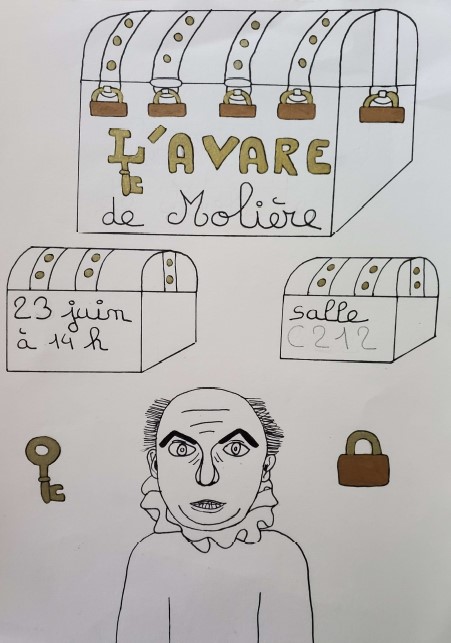 L'AVARE
de Molière
23 juin
à 14 h
salle
C212